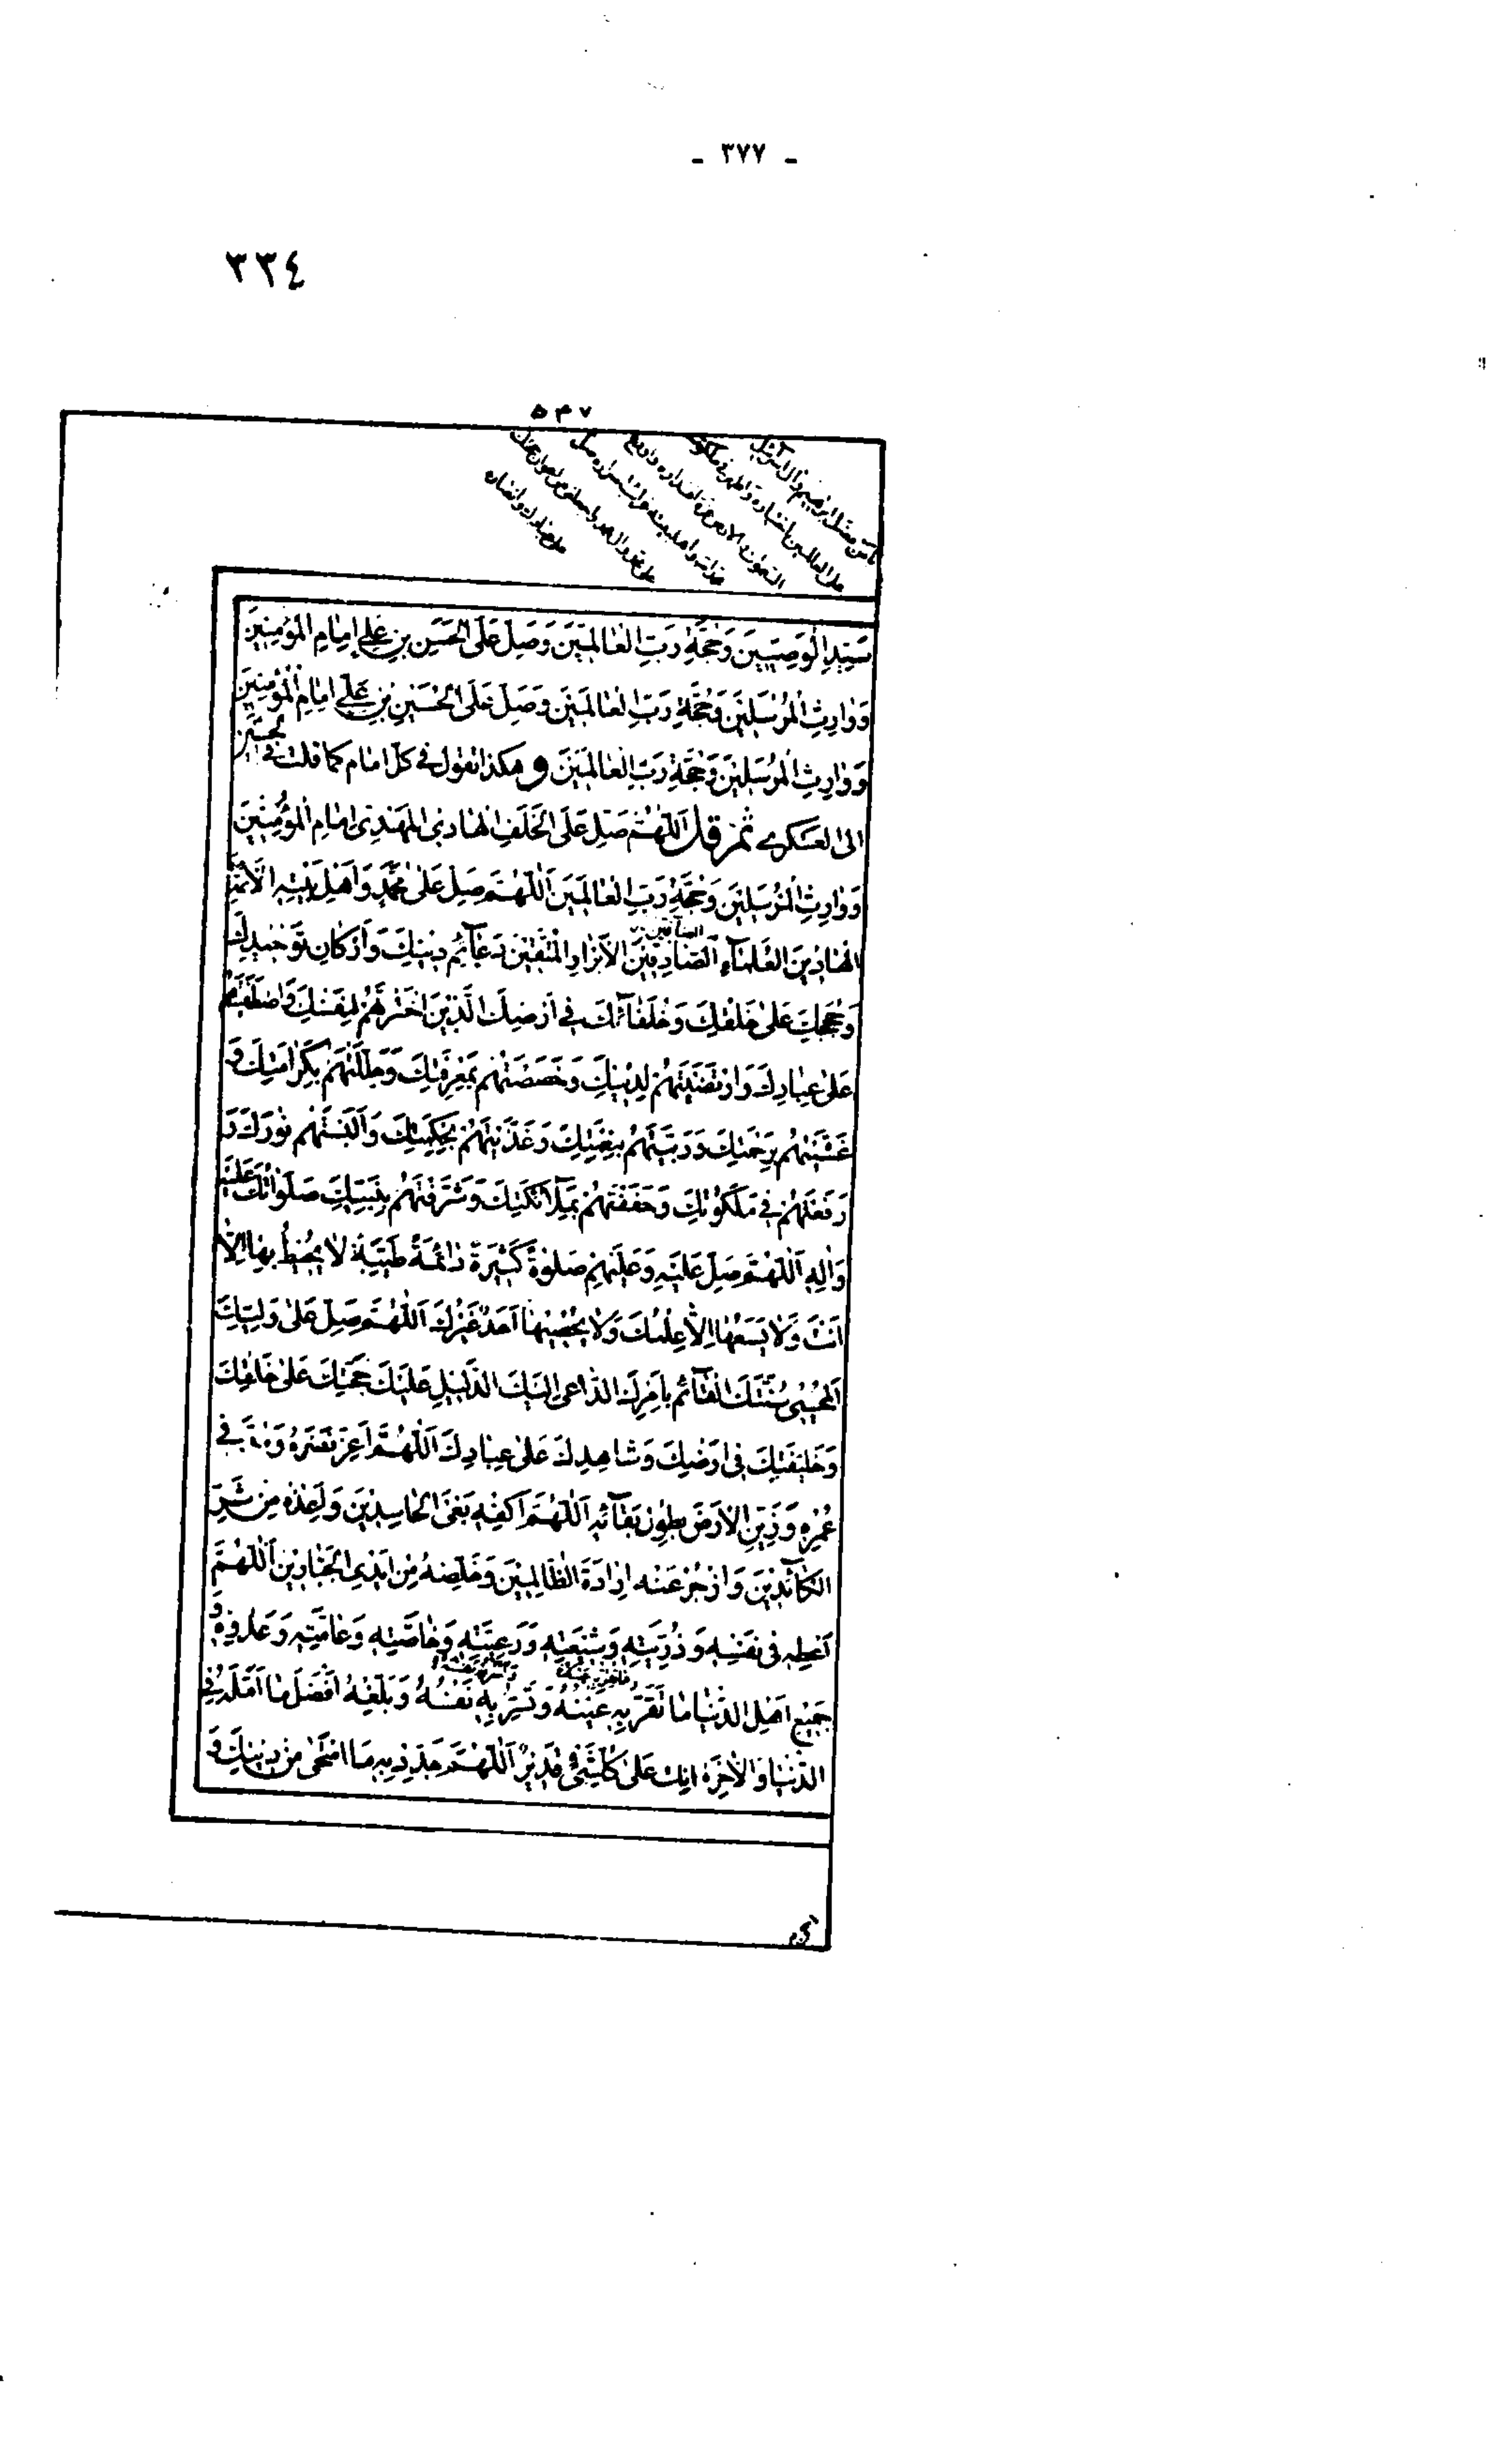 - ٣٧٧ -
٣٣٤
٥٣٧
على العالمين
سَيِّدِ الْوَصِيِّينَ وَحُجَّةِ رَبِّ الْعَالَمِينَ وَصَلِّ عَلَى الْحَسَنِ بْنِ عَلِيٍّ إِمَامِ الْمُؤْمِنِينَ
وَوَارِثِ الْمُرْسَلِينَ وَحُجَّةِ رَبِّ الْعَالَمِينَ وَصَلِّ عَلَى الْحُسَيْنِ بْنِ عَلِيٍّ إِمَامِ الْمُؤْمِنِينَ
وَوَارِثِ الْمُرْسَلِينَ وَحُجَّةِ رَبِّ الْعَالَمِينَ و هكذا تقول في كل امام كما قلت في الحسين
الى العسكري ثم قل اَللّٰهُمَّ صَلِّ عَلَى الْخَلَفِ الْهَادِي الْمَهْدِيِّ إِمَامِ الْمُؤْمِنِينَ
وَوَارِثِ الْمُرْسَلِينَ وَحُجَّةِ رَبِّ الْعَالَمِينَ اَللّٰهُمَّ صَلِّ عَلَى مُحَمَّدٍ وَاَهْلِ بَيْتِهِ الْاَئِمَّةِ
الْهَادِينَ الْعُلَمَاءِ الصَّادِقِينَ الْاَبْرَارِ الْمُتَّقِينَ دَعَآئِمِ دِينِكَ وَاَرْكَانِ تَوْحِيدِكَ
وَحُجَجِكَ عَلٰى خَلْقِكَ وَخُلَفَآئِكَ فِي اَرْضِكَ الَّذِينَ اخْتَرْتَهُمْ لِنَفْسِكَ وَاصْطَفَيْتَهُمْ
عَلٰى عِبَادِكَ وَارْتَضَيْتَهُمْ لِدِينِكَ وَخَصَصْتَهُمْ بِمَعْرِفَتِكَ وَجَلَّلْتَهُمْ بِكَرَامَتِكَ وَ
غَشَّيْتَهُمْ بِرَحْمَتِكَ وَرَبَّيْتَهُمْ بِنِعْمَتِكَ وَغَذَّيْتَهُمْ بِحِكْمَتِكَ وَاَلْبَسْتَهُمْ نُورَكَ وَ
رَفَعْتَهُمْ فِي مَلَكُوتِكَ وَحَفَفْتَهُمْ بِمَلآئِكَتِكَ وَشَرَّفْتَهُمْ بِنَبِيِّكَ صَلَوَاتُكَ عَلَيْهِ
وَاٰلِهِ اَللّٰهُمَّ صَلِّ عَلَيْهِ وَعَلَيْهِمْ صَلٰوةً كَثِيرَةً دَائِمَةً طَيِّبَةً لَا يُحِيطُ بِهَا اِلَّا
اَنْتَ وَلَا يَسَعُهَا اِلَّا عِلْمُكَ وَلَا يُحْصِيهَا اَحَدٌ غَيْرُكَ اَللّٰهُمَّ صَلِّ عَلٰى وَلِيِّكَ
الْمُحْيِي سُنَّتَكَ الْقَآئِمِ بِاَمْرِكَ الدَّاعِي اِلَيْكَ الدَّلِيلِ عَلَيْكَ حُجَّتِكَ عَلٰى خَلْقِكَ
وَخَلِيفَتِكَ فِي اَرْضِكَ وَشَاهِدِكَ عَلٰى عِبَادِكَ اَللّٰهُمَّ اَعِزَّ نَصْرَهُ وَمُدَّ فِي
عُمْرِهِ وَزَيِّنِ الْاَرْضَ بِطُولِ بَقَآئِهِ اَللّٰهُمَّ اكْفِهِ بَغْيَ الْحَاسِدِينَ وَاَعِذْهُ مِنْ شَرِّ
الْكَآئِدِينَ وَازْجُرْ عَنْهُ اِرَادَةَ الظَّالِمِينَ وَخَلِّصْهُ مِنْ اَيْدِي الْجَبَّارِينَ اَللّٰهُمَّ
اَعْطِهِ فِي نَفْسِهِ وَذُرِّيَّتِهِ وَشِيعَتِهِ وَرَعِيَّتِهِ وَخَاصَّتِهِ وَعَامَّتِهِ وَعَدُوِّهِ وَ
جَمِيعِ اَهْلِ الدُّنْيَا مَا تُقِرُّ بِهِ عَيْنَهُ وَتَسُرُّ بِهِ نَفْسَهُ وَبَلِّغْهُ اَفْضَلَ مَا اَمَّلَهُ فِي
الدُّنْيَا وَالْاٰخِرَةِ اِنَّكَ عَلٰى كُلِّ شَيْءٍ قَدِيرٌ اَللّٰهُمَّ جَدِّدْ بِهِ مَا امْتَحٰى مِنْ دِينِكَ وَ